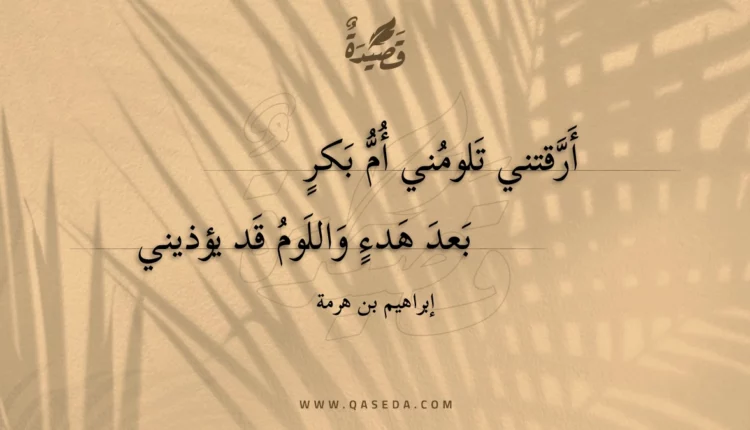 قَصِيدَةٌ
أَرَّقتني تَلومُني أُمُّ بَكرٍ
بَعدَ هَدءٍ وَاللَومُ قَد يؤذيني
إبراهيم بن هرمة
WWW.QASEDA.COM